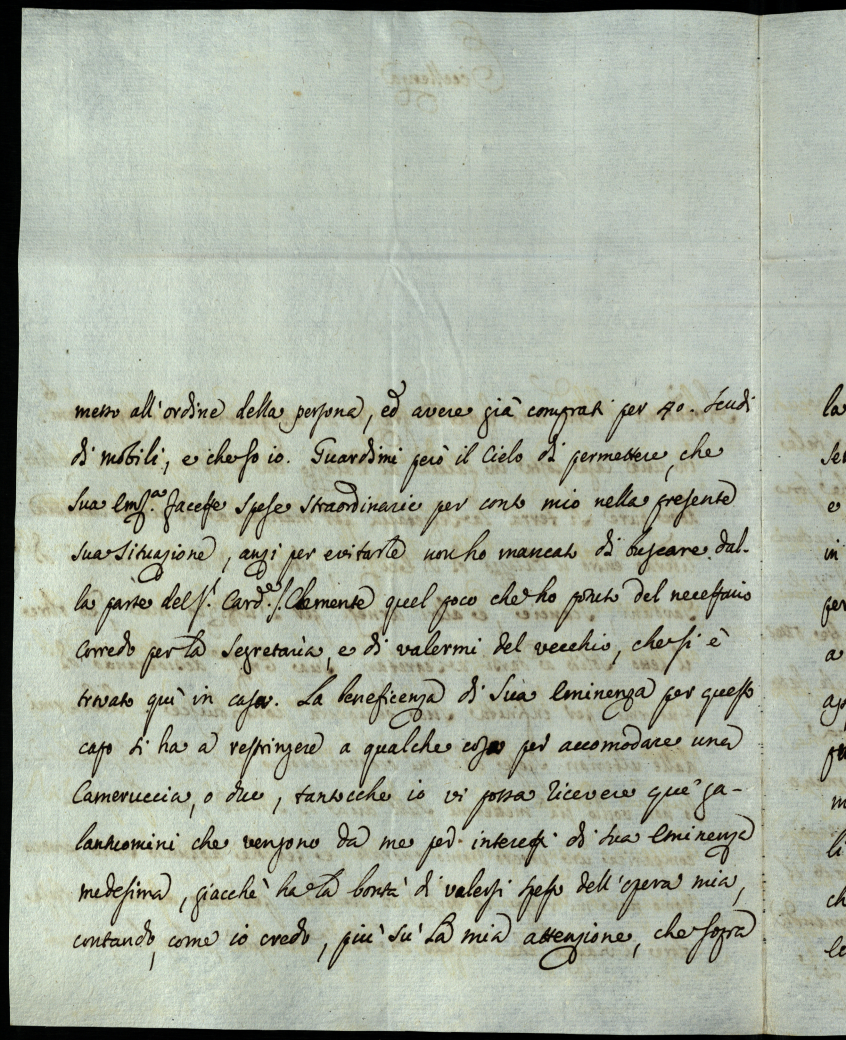 messo all'ordine della persona, ed avere già comprati per 40. scudi
di mobili, e che so io. Guardimi però il Cielo di permettere, che
Sua Em.ª facesse spese straordinarie per conto mio nella presente
sua situazione, anzi per evitarle non ho mancato di buscare dal-
la parte del S.r Card.e S. Clemente quel poco che ho potuto del necessario
corredo per la Segretaria, e di valermi del vecchio, che si è
trovato quì in casa. La beneficenza di Sua Eminenza per questo
capo si ha a restringere a qualche cosa per accomodare una
Cameruccia, o due, tantocche io vi possa ricevere que' ga-
lantuomini che vengono da me per interessi di Sua Eminenza
medesima, giacchè ha la bontà di valersi spesso dell'opera mia,
contando, come io credo, più sù la mia attenzione, che sopra
la
e
in
per
a
m
li
ch